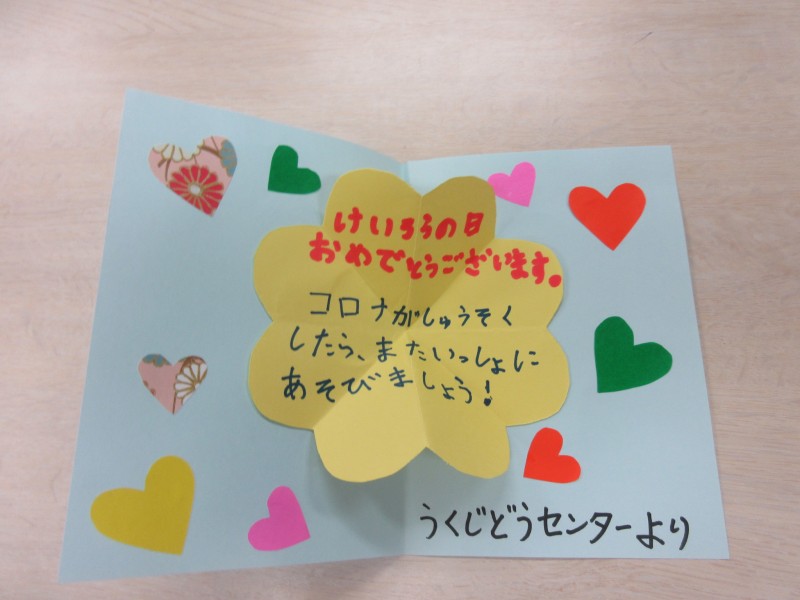 けいろうの日
おめでとうございます。
コロナがしゅうそく
したら、またいっしょに
あそびましょう!
うくじどうセンターより